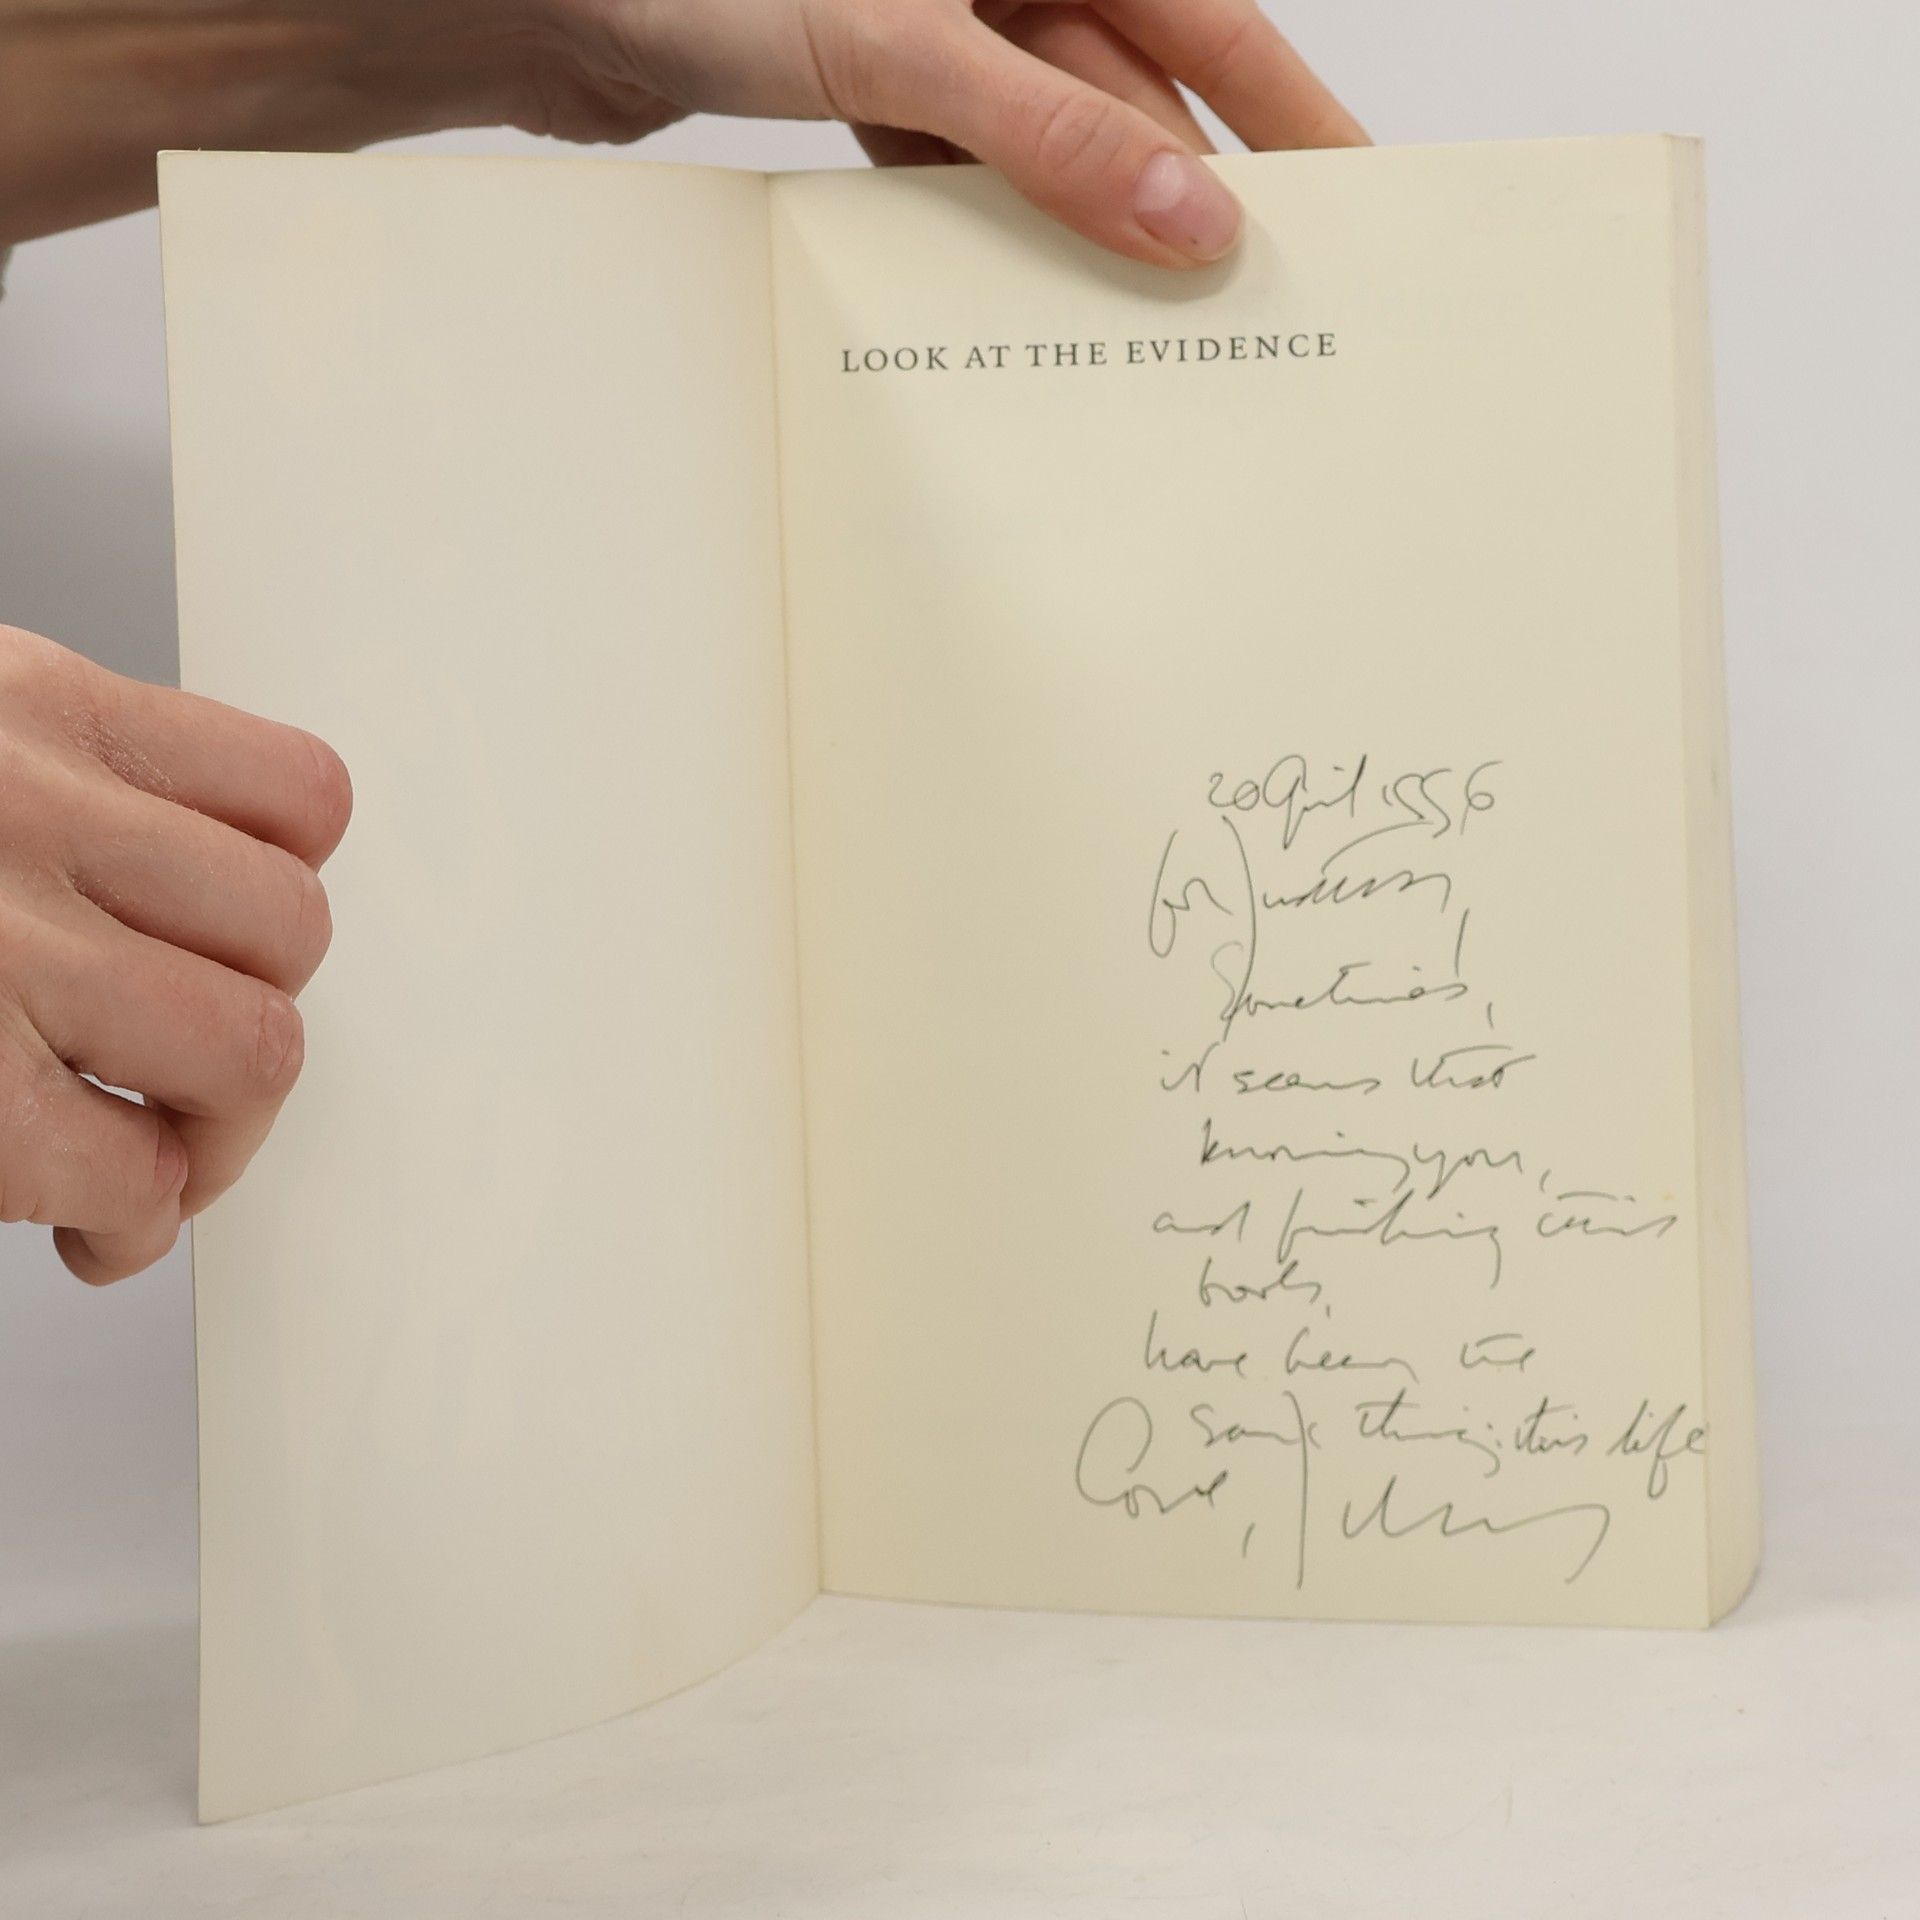 LOOK AT THE EVIDENCE
20 April 1996
for Judith
Sometimes,
it seems that
knowing you,
and finishing this
book,
have been the
same thing: this life
Love, John